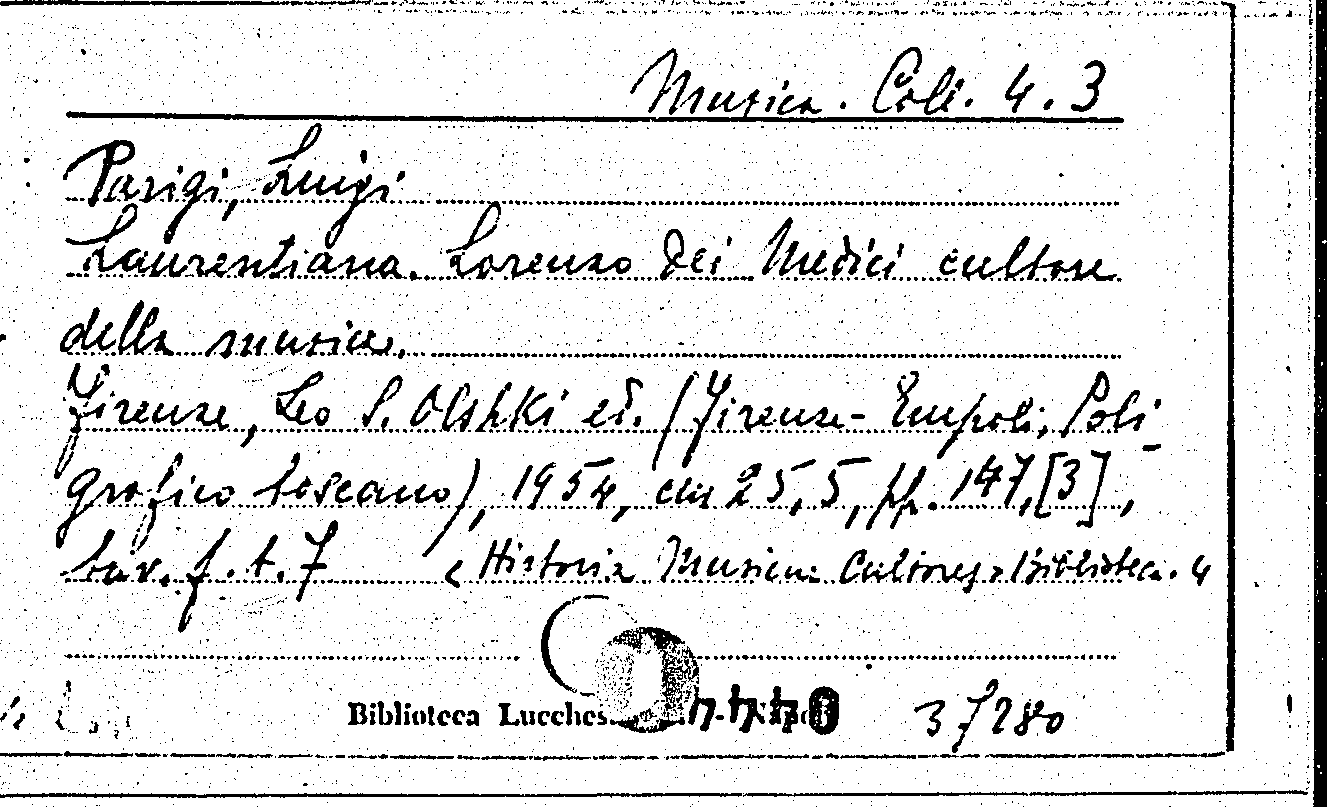 Musica. Coll. 4.3
Parigi, Luigi
Laurentiana. Lorenzo dei Medici cultore
della musica.
Firenze, Leo S. Olshki ed. (Firenze - Empoli, Poli-
grafico toscano), 1954, cm 25,5, pp. 147,[3],
tav. f. t. 7 < Historiæ Musicæ Cultores > Biblioteca. 4
Biblioteca
37280